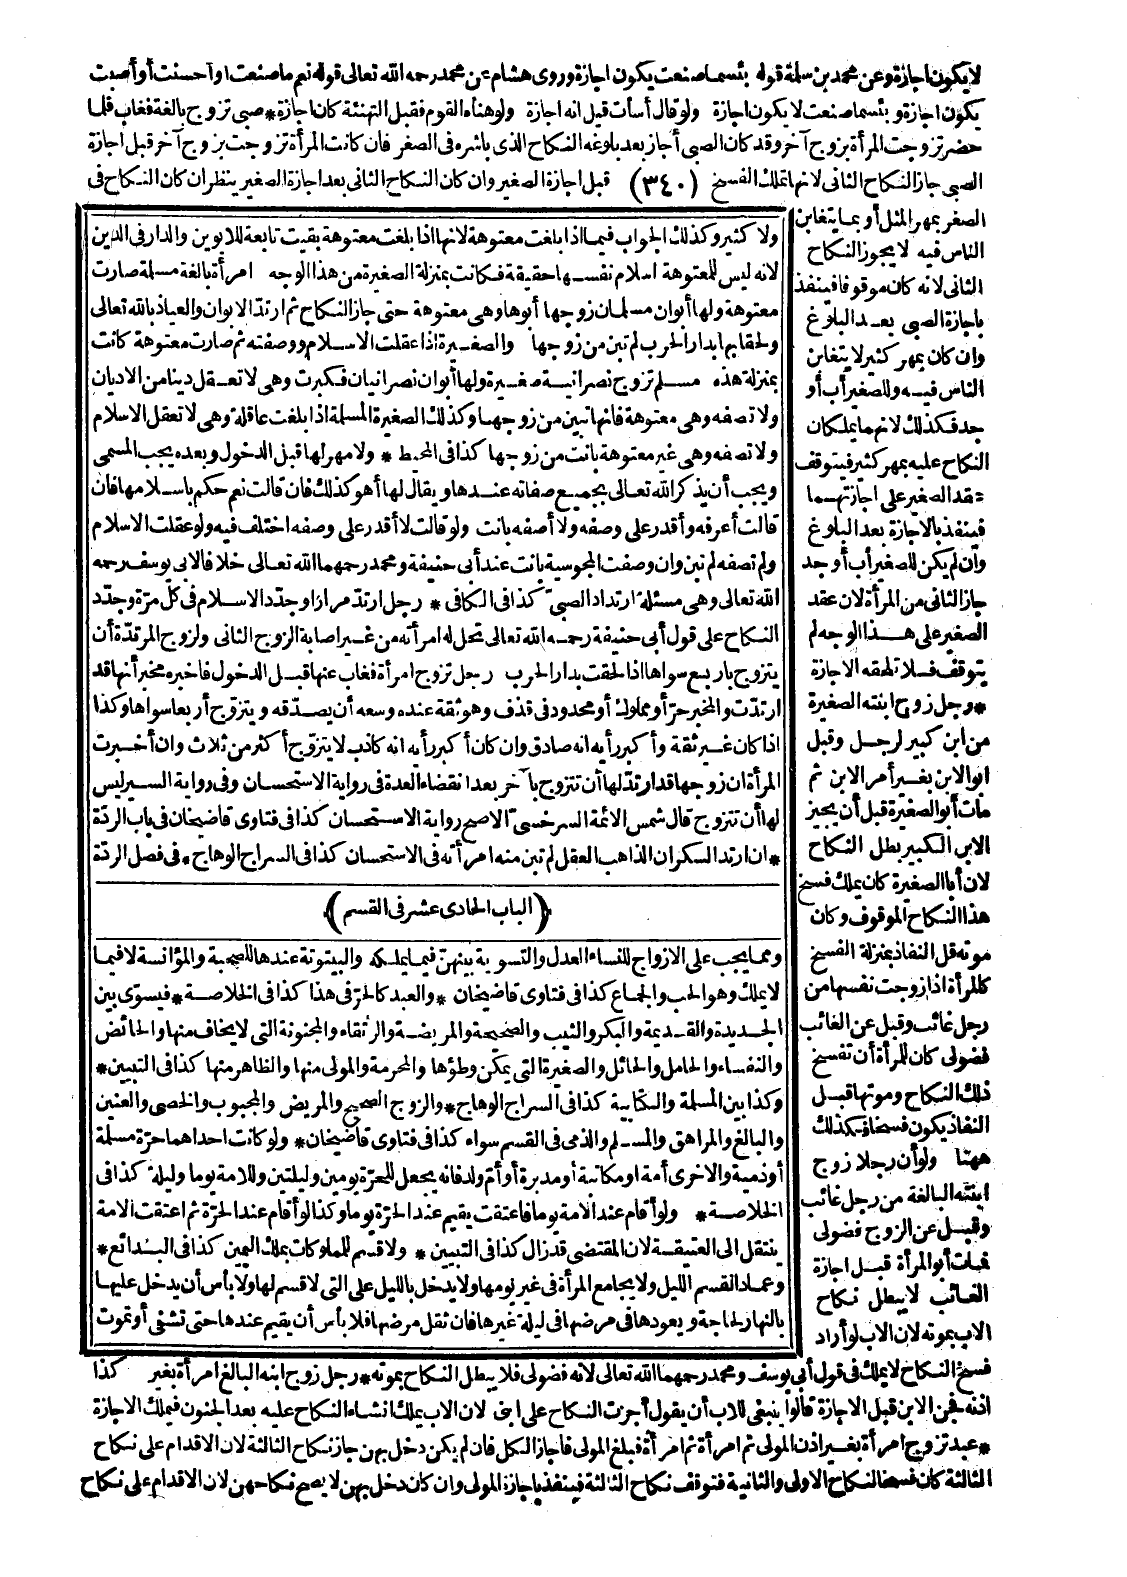 لا يكون اجازة وعن محمد بن سلمة قوله بئسما صنعت يكون اجازة وروى هشام عن محمد رحمه الله تعالى قوله نعم ما صنعت او أحسنت أو أصبت
يكون اجازة وبئسما صنعت لا يكون اجازة ولو قال أسأت قيل انه اجازة ولو هنأه القوم فقبل التهنئة كان اجازة * صبى تزوج بالغة فغاب فلما
حضر تزوجت المرأة بزوج آخر وقد كان الصبى أجاز بعد بلوغه النكاح الذى باشره فى الصغر فان كانت المرأة تزوجت بزوج آخر قبل اجازة
الصبى جاز النكاح الثانى لانها تملك الفسخ (٣٤٠) قبل اجازة الصغير وان كان النكاح الثانى بعد اجازة الصغير ينظر ان كان النكاح فى
الصغر بمهر المثل أو بما يتغابن
الناس فيه لا يجوز النكاح
الثانى لانه كان موقوفا فينفذ
باجازة الصبى بعد البلوغ
وان كان بمهر كثير لا يتغابن
الناس فيه وللصغير أب أو
جد فكذلك لانهما يملكان
النكاح عليه بمهر كثير فيتوقف
عقد الصغير على اجازتهما
فينفذ بالاجازة بعد البلوغ
وان لم يكن للصغير أب أو جد
جاز الثانى من المرأة لان عقد
الصغير على هذا الوجه لم
يتوقف فلا تلحقه الاجازة
* رجل زوج ابنته الصغيرة
من ابن كبير لرجل وقبل
ابو الابن بغير أمر الابن ثم
مات أبو الصغيرة قبل أن يجيز
الابن الكبير بطل النكاح
لان أبا الصغيرة كان يملك فسخ
هذا النكاح الموقوف وكان
موته قبل النفاذ بمنزلة الفسخ
كالمرأة اذا زوجت نفسها من
رجل غائب وقبل عن الغائب
فضولى كان للمرأة أن تفسخ
ذلك النكاح وموتها قبل
النفاذ يكون فسخا فكذلك
ههنا ولو أن رجلا زوج
ابنته البالغة من رجل غائب
وقبل عن الزوج فضولى
فمات أبو المرأة قبل اجازة
الغائب لا يبطل نكاح
الاب بموته لان الاب لو أراد
فسخ النكاح لا يملك فى قول أبى يوسف ومحمد رحمهما الله تعالى لانه فضولى فلا يبطل النكاح بموته * رجل زوج ابنه البالغ امرأة بغير
اذنه فجن الابن قبل الاجازة قالوا ينبغى للاب أن يقول أجزت النكاح على ابنى لان الاب يملك انشاء النكاح عليه بعد الجنون فيملك الاجازة
* عبد تزوج امرأة بغير اذن المولى ثم امرأة ثم امرأة فبلغ المولى فاجاز الكل فان لم يكن دخل بهن جاز نكاح الثالثة لان الاقدام على نكاح
الثالثة كان فسخا لنكاح الاولى والثانية فتوقف نكاح الثالثة فينفذ باجازة المولى وان كان دخل بهن لا يصح نكاحهن لان الاقدام على نكاح
ولا كثير وكذلك الجواب فيما اذا بلغت معتوهة لانها اذا بلغت معتوهة بقيت تابعة للابوين والدار فى الدين
لانه ليس للمعتوهة اسلام نفسها حقيقة فكانت بمنزلة الصغيرة من هذا الوجه امرأة بالغة مسلمة صارت
معتوهة ولها أبوان مسلمان زوجها أبوها وهى معتوهة حتى جاز النكاح ثم ارتد الابوان والعياذ بالله تعالى
ولحقا بها بدار الحرب لم تبن من زوجها والصغيرة اذا عقلت الاسلام ووصفته ثم صارت معتوهة كانت
بمنزلة هذه مسلم تزوج نصرانية صغيرة ولها أبوان نصرانيان فكبرت وهى لا تعقل دينا من الاديان
ولا تصفه وهى معتوهة فانها تبين من زوجها وكذلك الصغيرة المسلمة اذا بلغت عاقلة وهى لا تعقل الاسلام
ولا تصفه وهى غير معتوهة بانت من زوجها كذا فى المحيط * ولا مهر لها قبل الدخول وبعده يجب المسمى
ويجب أن يذكر الله تعالى بجميع صفاته عندها ويقال لها أهو كذلك فان قالت نعم حكم باسلامها فان
قالت أعرفه وأقدر على وصفه ولا أصفه بانت ولو قالت لا أقدر على وصفه اختلف فيه ولو عقلت الاسلام
ولم تصفه لم تبن وان وصفت المجوسية بانت عند أبى حنيفة ومحمد رحمهما الله تعالى خلافا لابى يوسف رحمه
الله تعالى وهى مسئلة ارتداد الصبى كذا فى الكافى * رجل ارتد مرارا وجدّد الاسلام فى كل مرّة وجدّد
النكاح على قول أبى حنيفة رحمه الله تعالى تحل له امرأته من غير اصابة الزوج الثانى ولزوج المرتدة أن
يتزوج باربع سواها اذا لحقت بدار الحرب رجل تزوج امرأة فغاب عنها قبل الدخول فاخبره مخبر أنها قد
ارتدّت والمخبر حرّ أو مملوك أو محدود فى قذف وهو ثقة عنده وسعه أن يصدّقه ويتزوّج أربعا سواها وكذا
اذا كان غير ثقة وأكبر رأيه انه صادق وان كان أكبر رأيه انه كاذب لا يتزوّج أكثر من ثلاث وان أخبرت
المرأة ان زوجها قد ارتد لها أن تتزوج بآخر بعد انقضاء العدة فى رواية الاستحسان وفى رواية السير ليس
لها أن تتزوج قال شمس الائمة السرخسىّ الاصح رواية الاستحسان كذا فى فتاوى قاضيخان فى باب الردّة
* ان ارتد السكران الذاهب العقل لم تبن منه امرأته فى الاستحسان كذا فى السراج الوهاج * فى فصل الردّة
(الباب الحادى عشر فى القسم)
ومما يجب على الازواج للنساء العدل والتسوية بينهنّ فيما يملكه والبيتوتة عندها للصحبة والمؤانسة لا فيما
لا يملك وهو الحب والجماع كذا فى فتاوى قاضيخان * والعبد كالحرّ فى هذا كذا فى الخلاصة * فيسوّى بين
الجديدة والقديمة والبكر والثيب والصحيحة والمريضة والرتقاء والمجنونة التى لا يخاف منها والحائض
والنفساء والحامل والحائل والصغيرة التى يمكن وطؤها والمحرمة والمولى منها والظاهر منها كذا فى التبيين *
وكذا بين المسلمة والكتابية كذا فى السراج الوهاج * والزوج الصحيح والمريض والمجبوب والخصى والعنين
والبالغ والمراهق والمسلم والذمى فى القسم سواء كذا فى فتاوى قاضيخان * ولو كانت احداهما حرّة مسلمة
أو ذمية والاخرى أمة او مكاتبة أو مدبرة أو أم ولد فانه يجعل للحرّة يومين وليلتين وللامة يوما وليلة كذا فى
الخلاصة * ولو أقام عند الامة يوما فاعتقت يقيم عند الحرّة يوما وكذا لو أقام عند الحرّة ثم اعتقت الامة
ينتقل الى العتيقة لان المقتضى قد زال كذا فى التبيين * ولا قسم للمملوكات بملك اليمين كذا فى البدائع *
وعماد القسم الليل ولا يجامع المرأة فى غير يومها ولا يدخل بالليل على التى لا قسم لها ولا بأس أن يدخل عليها
بالنهار لحاجة ويعودها فى مرضها فى ليلة غيرها فان ثقل مرضها فلا بأس أن يقيم عندها حتى تشفى أو تموت
كذا